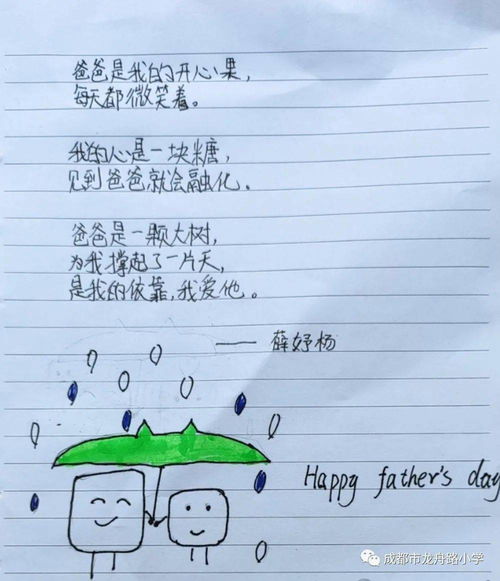 爸爸是我的开心果，
每天都微笑着。
我的心是一块糖，
见到爸爸就会融化。
爸爸是一颗大树，
为我撑起了一片天，
是我的依靠，我爱他。
—— 薛妤杨
Happy father's day
成都市龙舟路小学